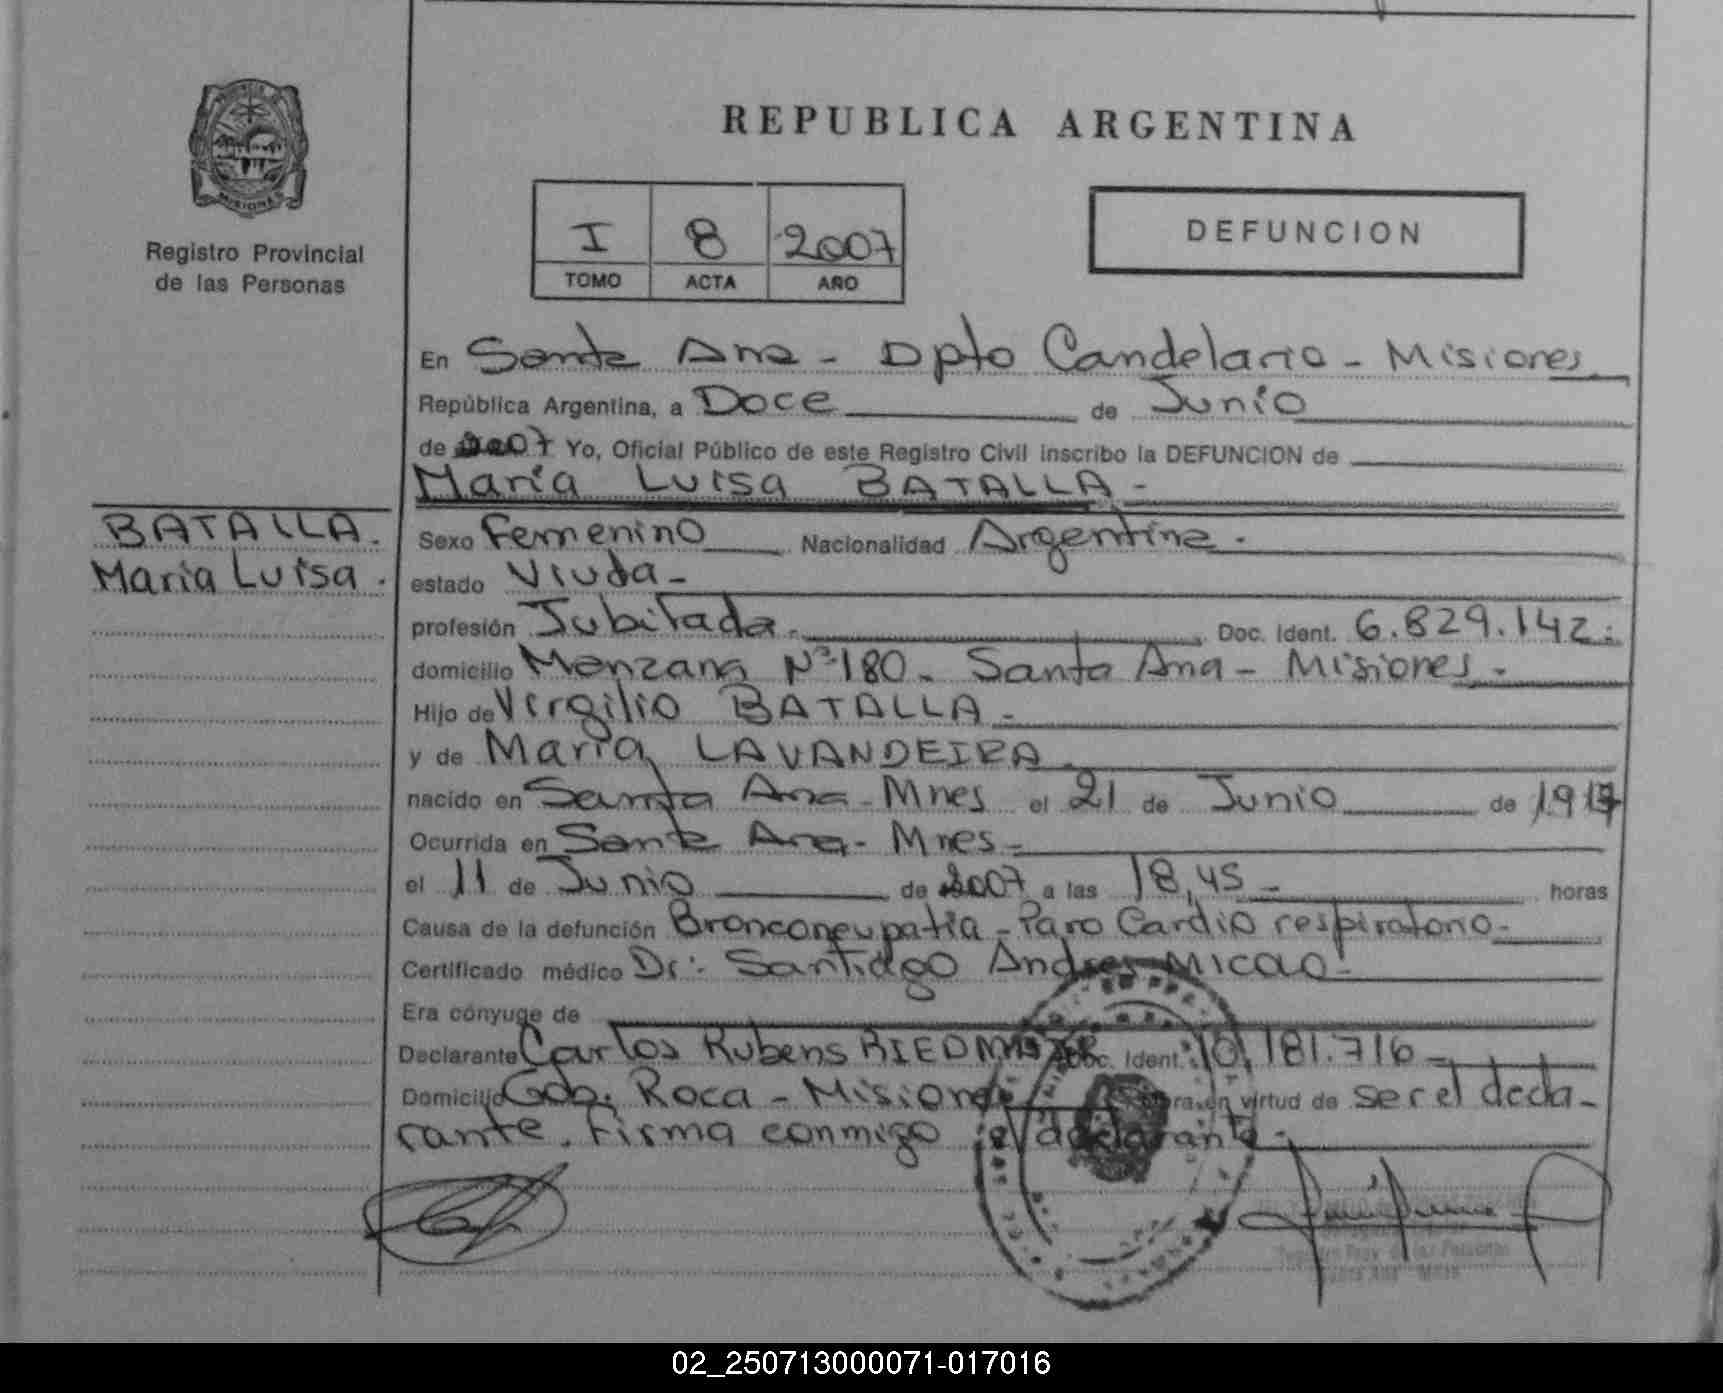 REPUBLICA ARGENTINA
MISIONES
Registro Provincial
de las Personas
I 8 2007
TOMO ACTA AÑO
DEFUNCION
En Santa Ana - Dpto Candelaria - Misiones
República Argentina, a Doce de Junio
de 2007 Yo, Oficial Público de este Registro Civil inscribo la DEFUNCION de
María Luisa BATALLA -
BATALLA.
María Luisa.
Sexo Femenino Nacionalidad Argentina.
estado Viuda -
profesión Jubilada. Doc. Ident. 6.829.142.
domicilio Manzana Nº 180 - Santa Ana - Misiones -
Hijo de Virgilio BATALLA -
y de María LAVANDEIRA.
nacido en Santa Ana - Mnes el 21 de Junio de 1917
Ocurrida en Santa Ana - Mnes -
el 11 de Junio de 2007 a las 18,45 - horas
Causa de la defunción Bronconeupatia - Paro Cardio respiratorio -
Certificado médico Dr: Santiago Andres MICAO -
Era cónyuge de
Declarante Carlos Rubens Doc. Ident. 10.181.716 -
Domicilio Gdor. Roca - Misiones en virtud de ser el decla-
rante. Firma conmigo el declarante -
Registro Prov. de las Personas
Santa Ana Mnes
02_250713000071-017016